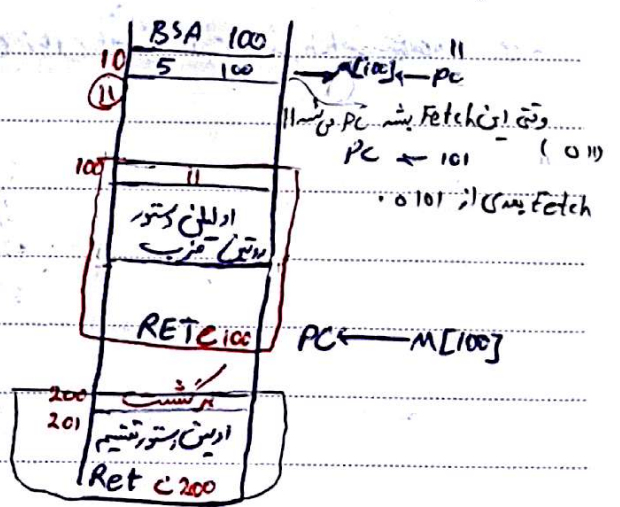 BSA 100
10 5 100 M[100] ← PC 11
11
وقتی این Fetch بشه PC می‌شه 11
(011)
PC ← 101
100 11
Fetch بعدی از 0101.
اولین دستور
روتین ضرب
RET C 100 PC ← M[100]
200 برگشت
201 اولین دستور تقسیم
Ret C 200